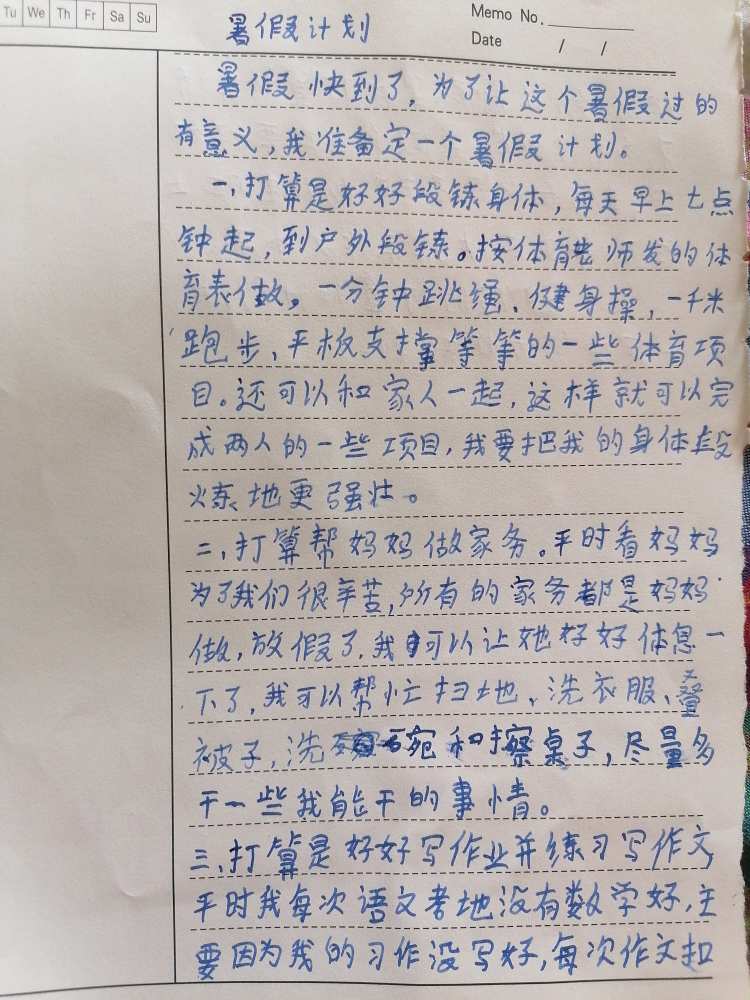 Tu We Th Fr Sa Su
Memo No.
Date / /
暑假计划
暑假快到了，为了让这个暑假过的
有意义，我准备定一个暑假计划。
一、打算是好好段锛身体，每天早上七点
钟起，到户外段锛。按体育老师发的体
育表做。一分钟跳绳、健身操，一千米
跑步，平板支撑等等的一些体育项
目。还可以和家人一起，这样就可以完
成两人的一些项目，我要把我的身体段
炼地更强壮。
二、打算帮妈妈做家务。平时看妈妈
为了我们很辛苦，所有的家务都是妈妈
做，放假了，我可以让她好好休息一
下了，我可以帮忙扫地、洗衣服、叠
被子，洗碗和擦桌子，尽量多
干一些我能干的事情。
三、打算是好好写作业并练习写作文，
平时我每次语文考地没有数学好，主
要因为我的习作没写好，每次作文扣